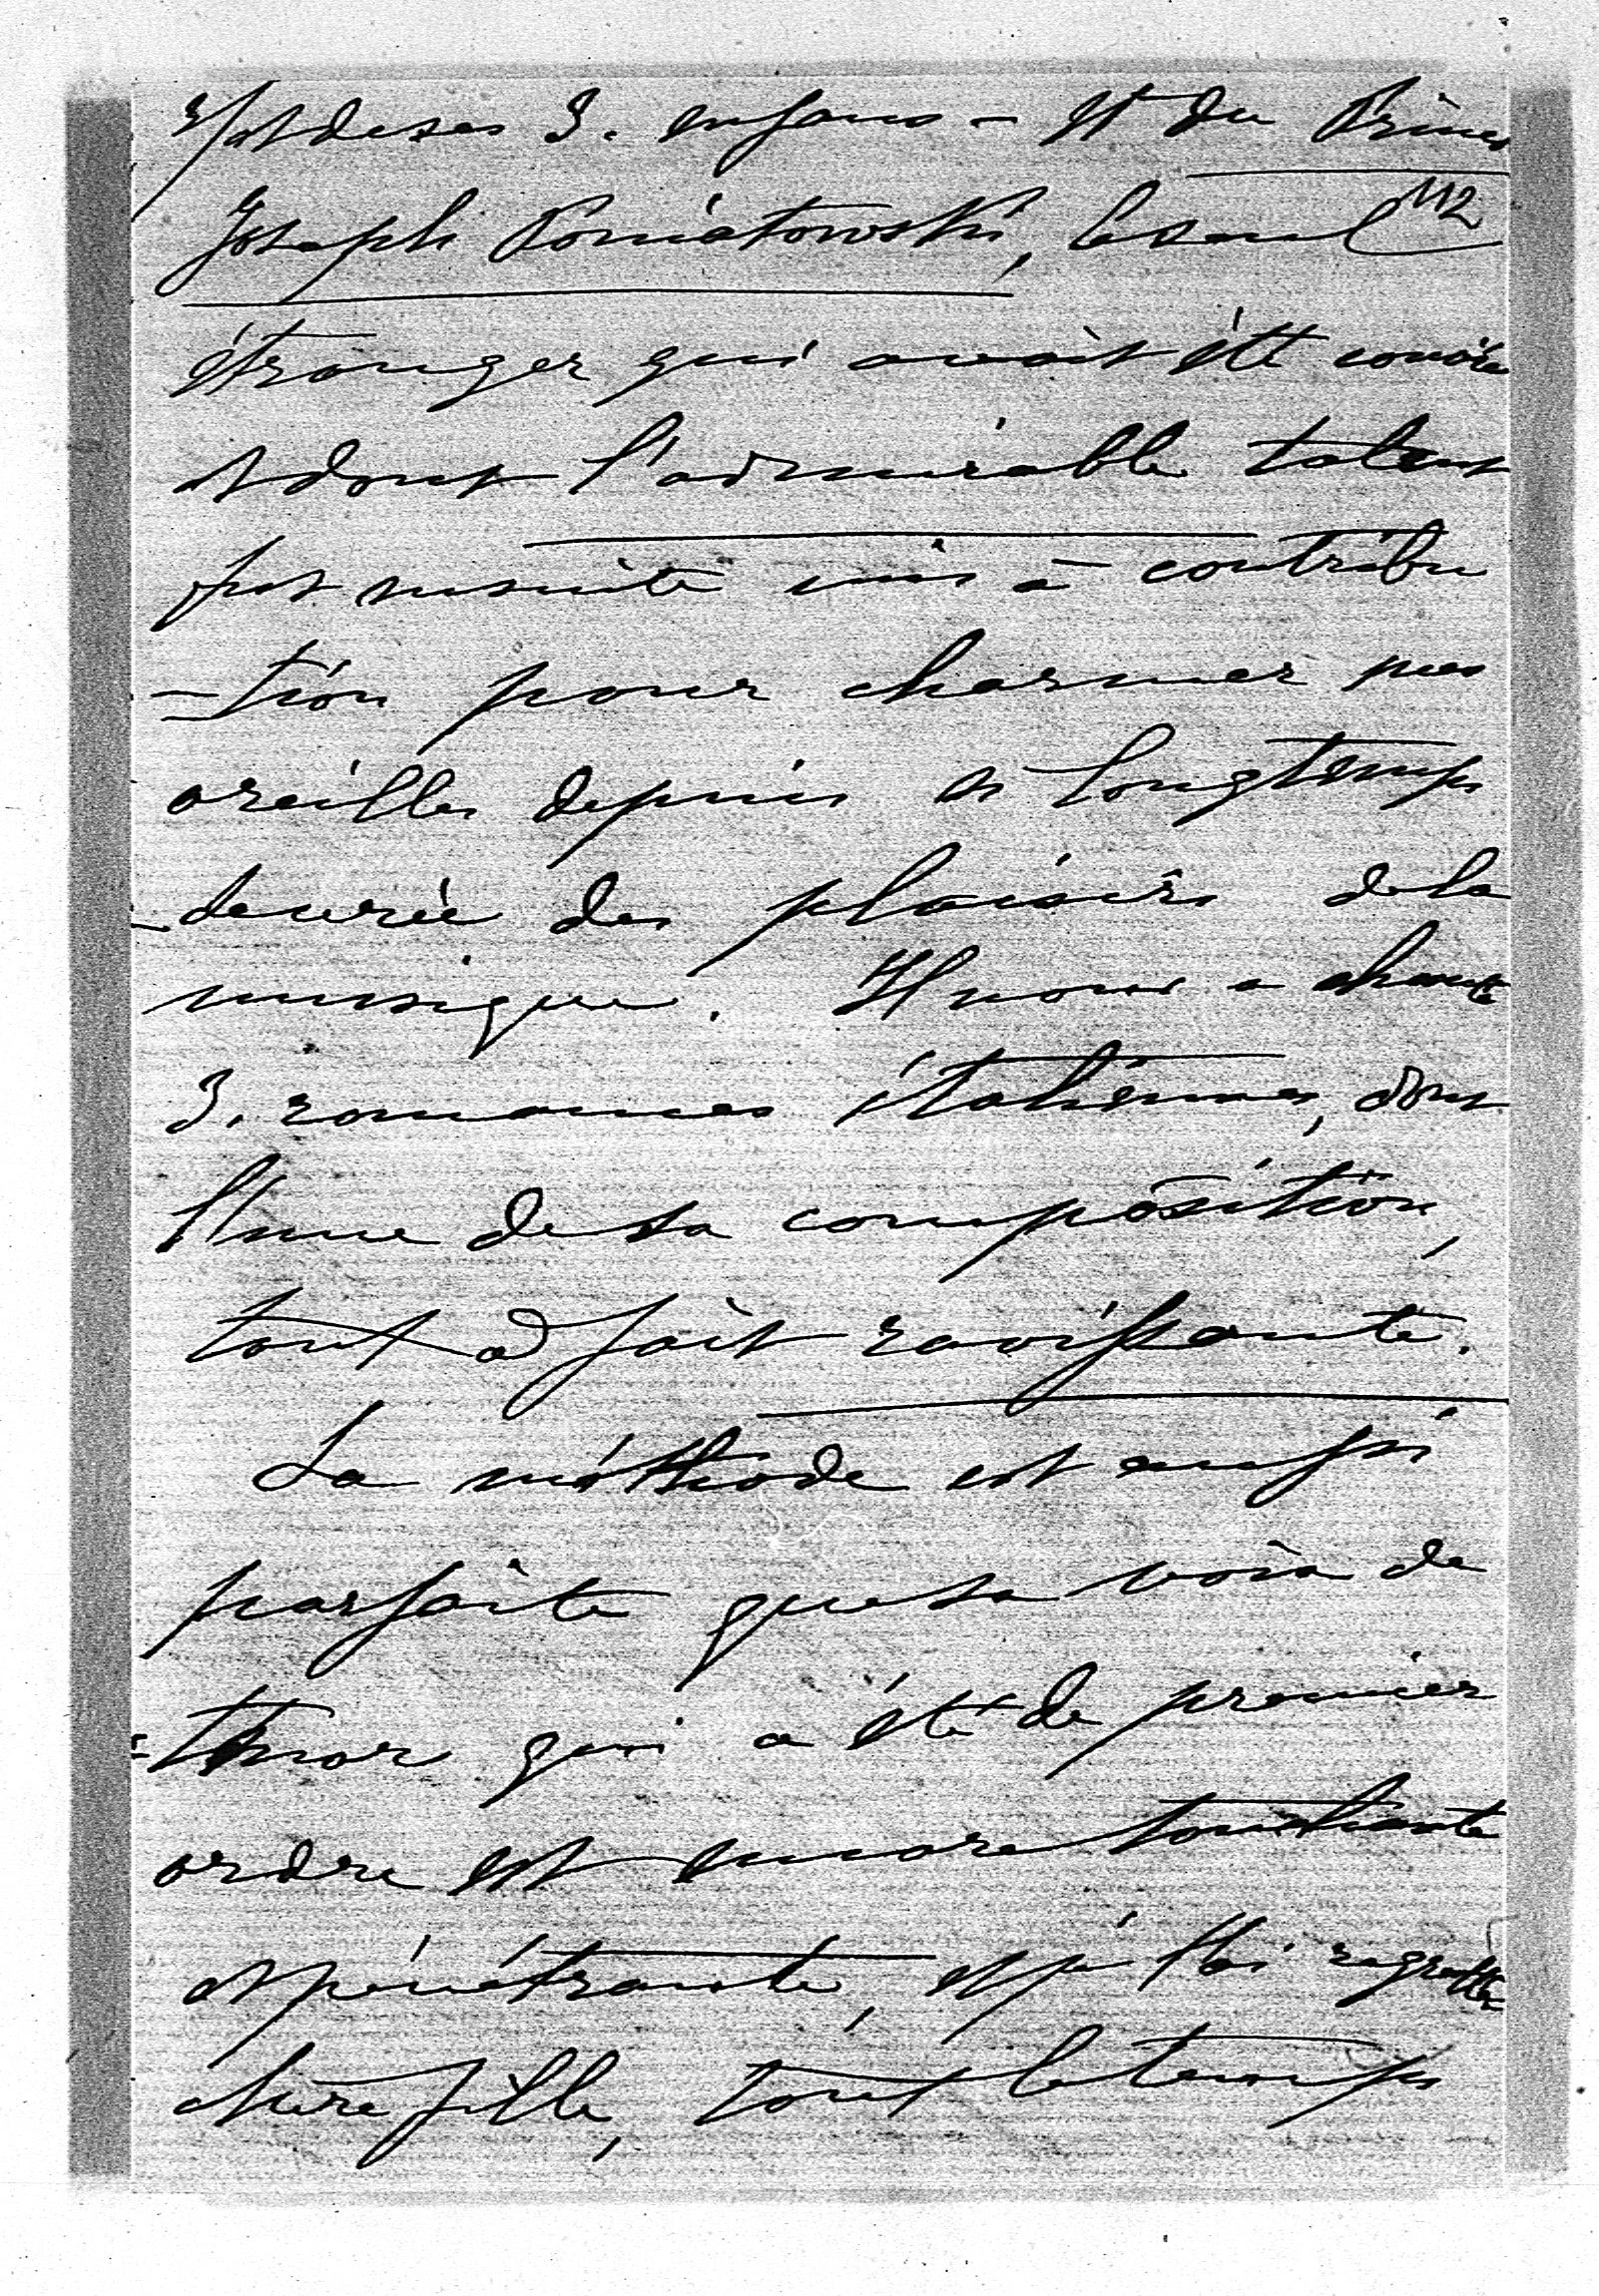 et de ses 3. enfans – et du Prince
Joseph Poniatowski, le seul 112
étranger qui avait été convié
et dont l'admirable talent
fut ensuite mis à contribu
-tion pour charmer nos
oreilles depuis si longtemps
sevrées des plaisirs de la
musique. Il nous a chanté
3. romances italiennes, dont
l'une de sa composition,
tout à fait ravissante.
Sa méthode est aussi
parfaite que sa voix de
ténor qui a été de premier
ordre est encore touchante
et pénétrante, et je t'ai regrettée
chère fille, tout le temps